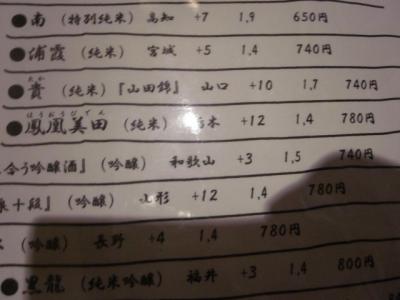 ●南(特別純米) 高知 +7 1.9 650円
●浦霞(純米) 宮城 +5 1.4 740円
たか
●貴(純米)『山田錦』 山口 +10 1.7 740円
ほうおうびでん
●鳳凰美田(純米) 栃木 +12 1.4 780円
合う吟醸酒』(吟醸) 和歌山 +3 1.5 740円
十段』(吟醸) 山形 +12 1.4 780円
(吟醸) 長野 +4 1.4 780円
●黒龍(純米吟醸) 福井 +3 1.4 800円